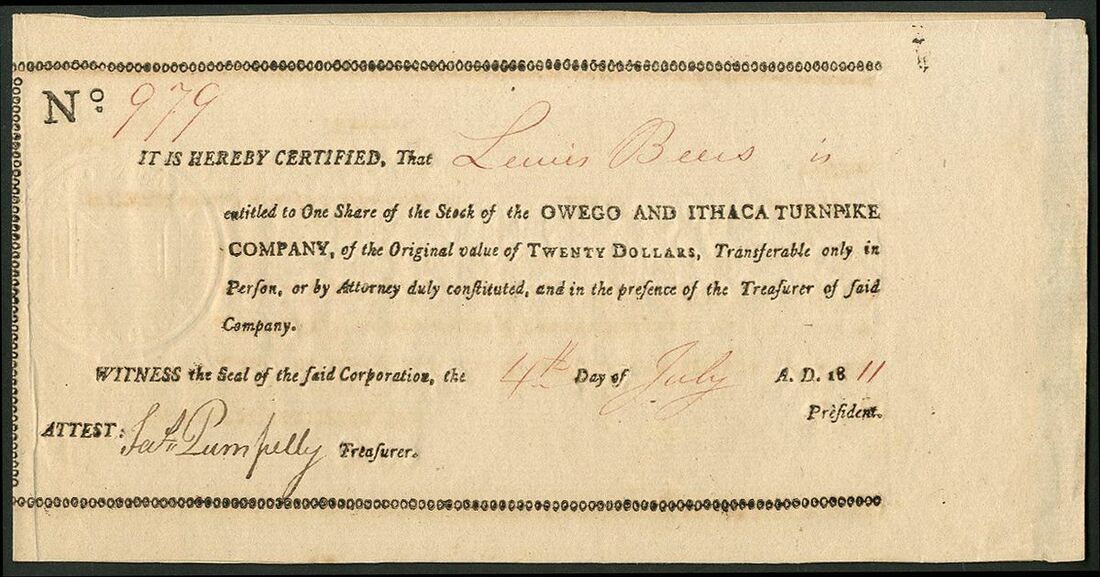 No. 979
IT IS HEREBY CERTIFIED, That Lewis Beers is
entitled to One Share of the Stock of the OWEGO AND ITHACA TURNPIKE
COMPANY, of the Original value of TWENTY DOLLARS, Transferable only in
Perſon, or by Attorney duly conſtituted, and in the preſence of the Treaſurer of ſaid
Company.
WITNESS the Seal of the ſaid Corporation, the 4th Day of July A. D. 1811
Preſident.
ATTEST: Jas. Pumpelly Treaſurer.